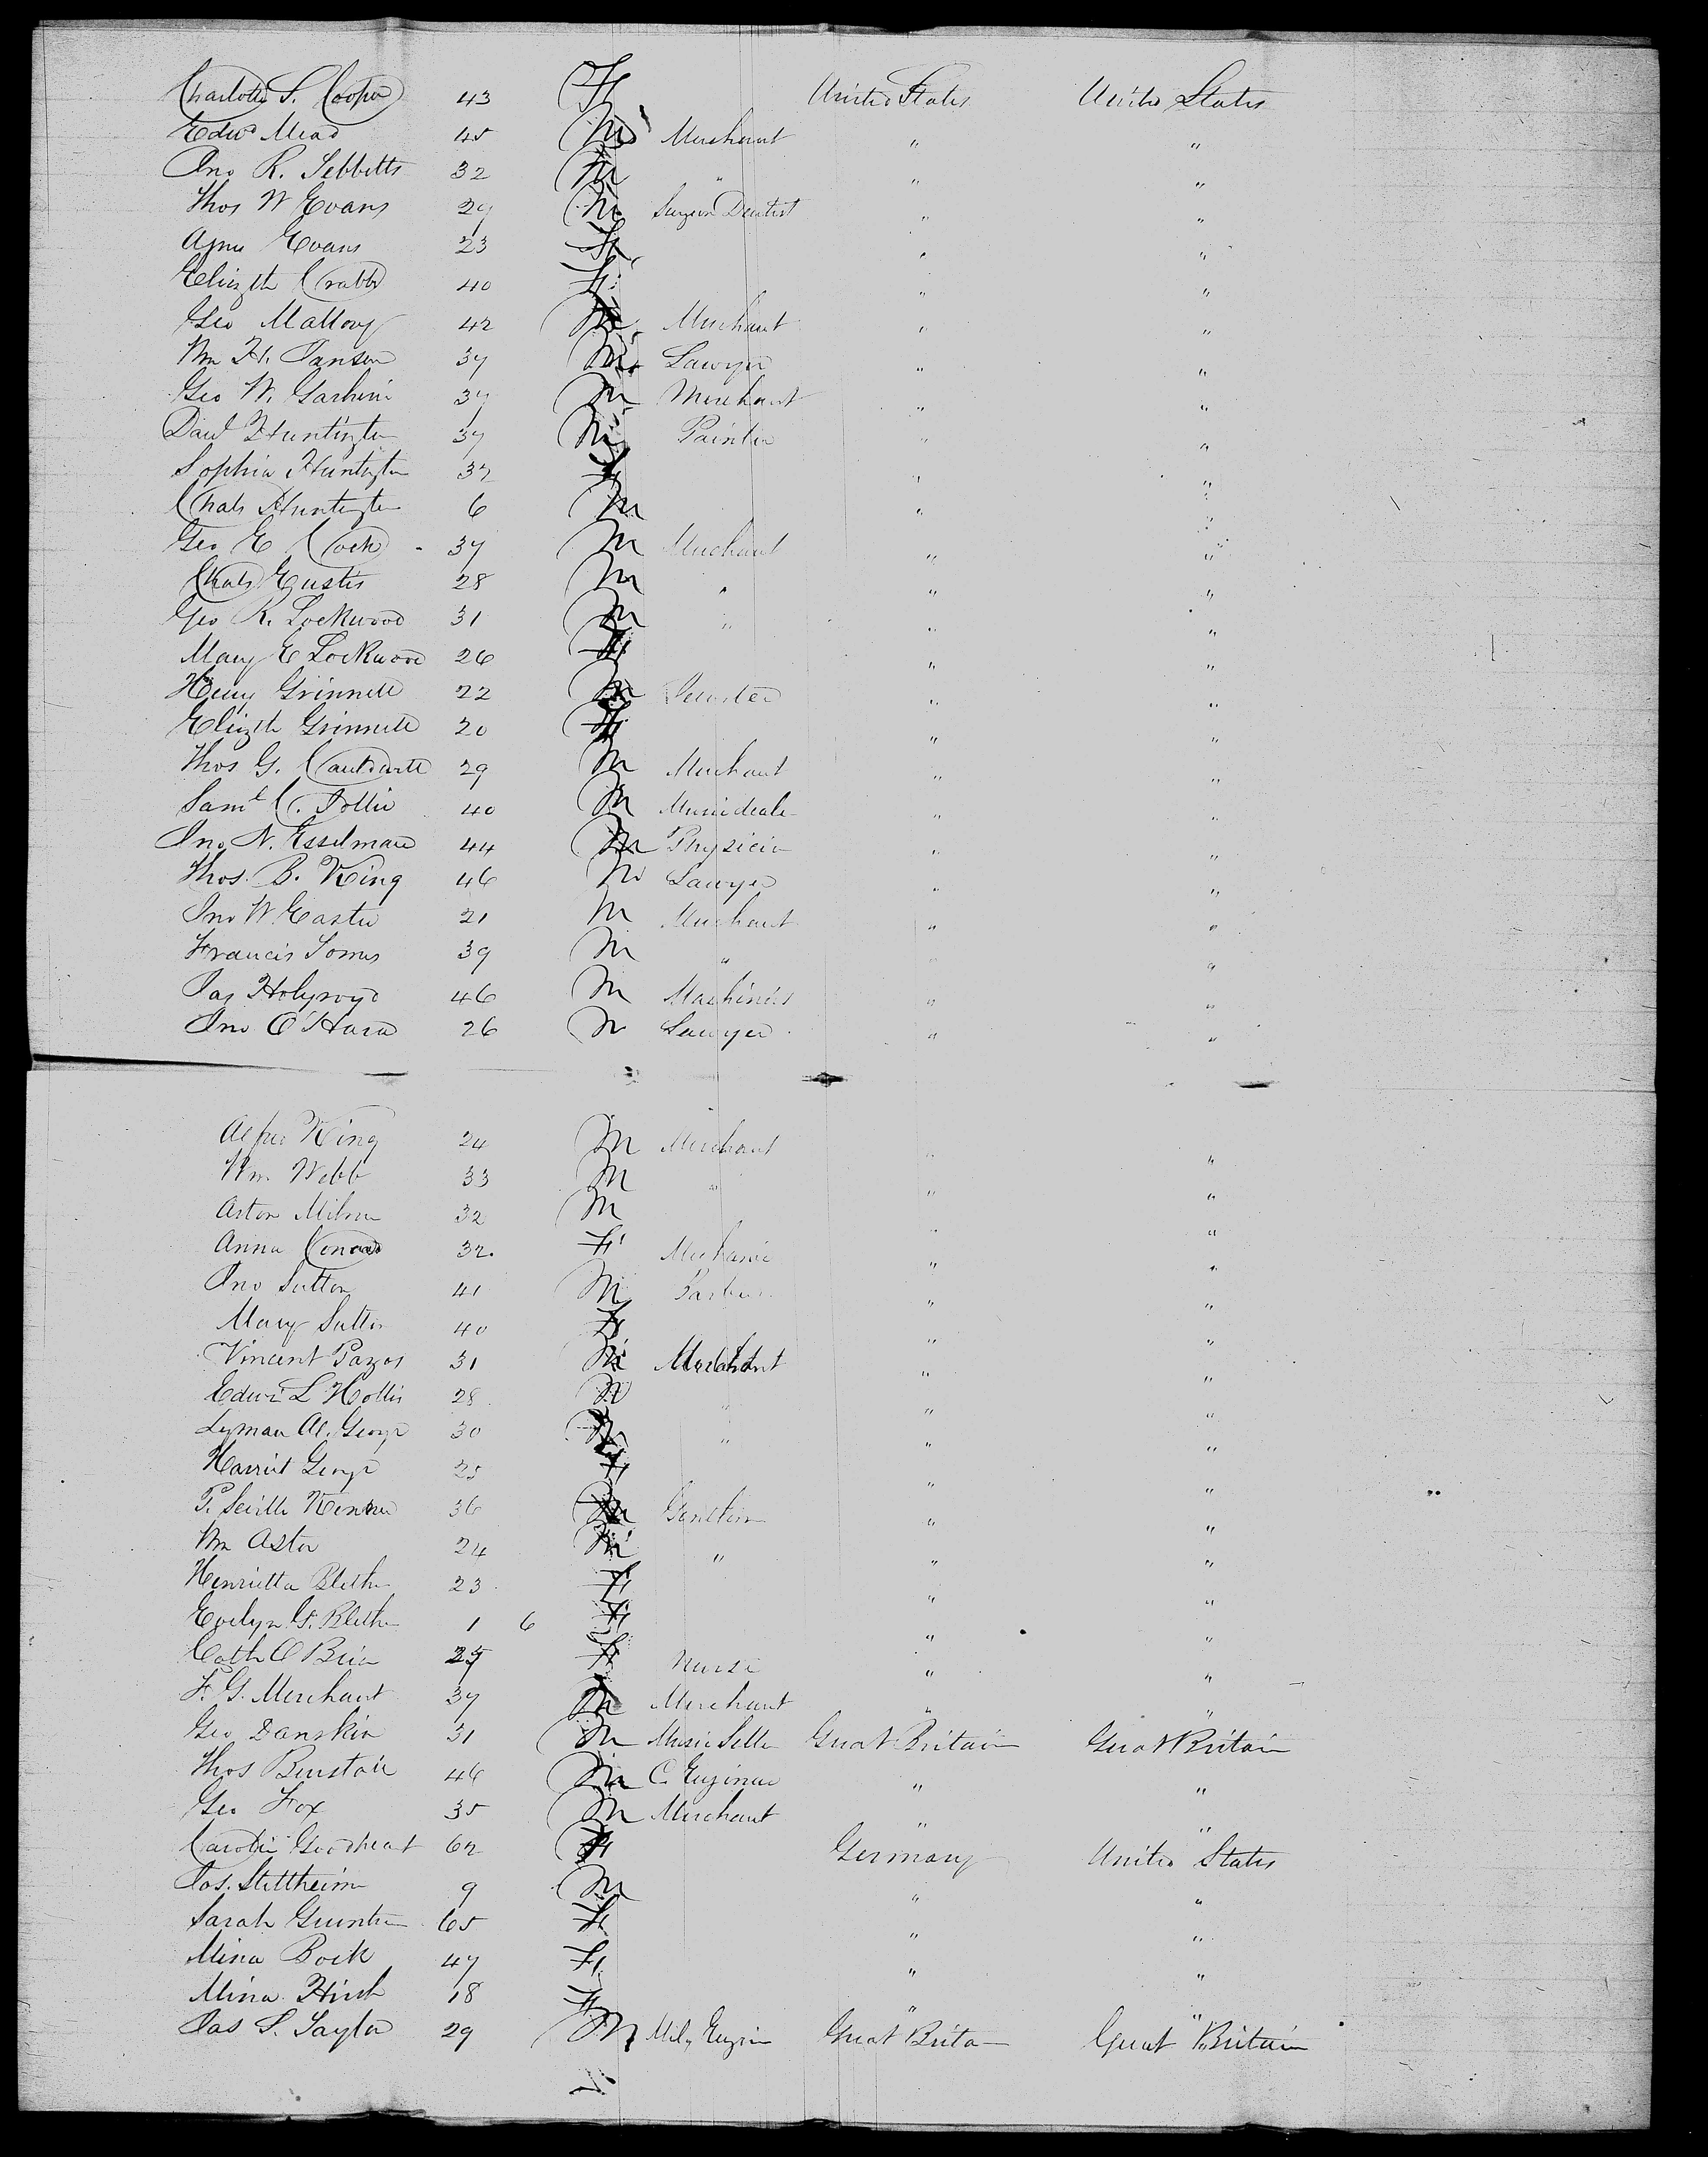 Charlotte S. Cooper 43 F United States United States
Edwd Mead 45 M Merchant " "
Jno R. Tebbetts 32 M " " "
Thos W Evans 29 M Surgeon Dentist " "
Agnes Evans 23 F " "
Elizth Crabbe 40 F " "
Geo Mallory 42 M Merchant " "
Wm H. Janson 37 M Lawyer " "
Geo W. 37 M Merchant " "
Danl Huntington 37 M Painter " "
Sophia Huntington 32 F " "
Chals Huntington 6 M " "
Geo E Cock 37 M Merchant " "
Chals Eustis 28 M " " "
Geo R. Lockwood 31 M " " "
Mary E Lockwood 26 F " "
Henry Grinnell 22 M " "
Elizth Grinnell 20 F " "
Thos G. Cauldwell 29 M Merchant " "
Saml C. Jollie 40 M Music dealer " "
Jno N. Esselman 44 M Physician " "
Thos. B. King 46 M Lawyer " "
Jno W. Easter 21 M Merchant " "
Francis Tomes 39 M " " "
Jas Holyroyd 46 M Machinist " "
Jno O'Hara 26 M Lawyer " "
Alfred King 24 M Merchant " "
Wm Webb 33 M " " "
Aston Milner 32 M " "
Anna Conrad 32 F Mechanic " "
Jno Sutton 41 M Barber " "
Mary Sutton 40 F " "
Vincent Pazos 31 M Merchant " "
Edwin L Hollis 28 M " " "
Lyman Al. George 30 M " " "
Harriet George 25 F " "
P. Seville Kenner 36 M Gentlem " "
Wm Astor 24 M " " "
Henrietta 23 F " "
Evelyn G. 1 6 F " "
Cath O Brien 25 F Nurse " "
F. G. Merchant 37 M Merchant " "
Geo Danskin 31 M Music Seller Great Britain Great Britain
Thos 46 M C. Engineer " "
Geo Fox 35 M Merchant " "
Caroline Goodheart 62 F Germany United States
Jos. Stettheim 9 M " "
Sarah 65 F " "
Mina Bock 47 F " "
Mina Hirsh 18 F " "
Jas S. Taylor 29 M Mily Engin Great Britain Great Britain